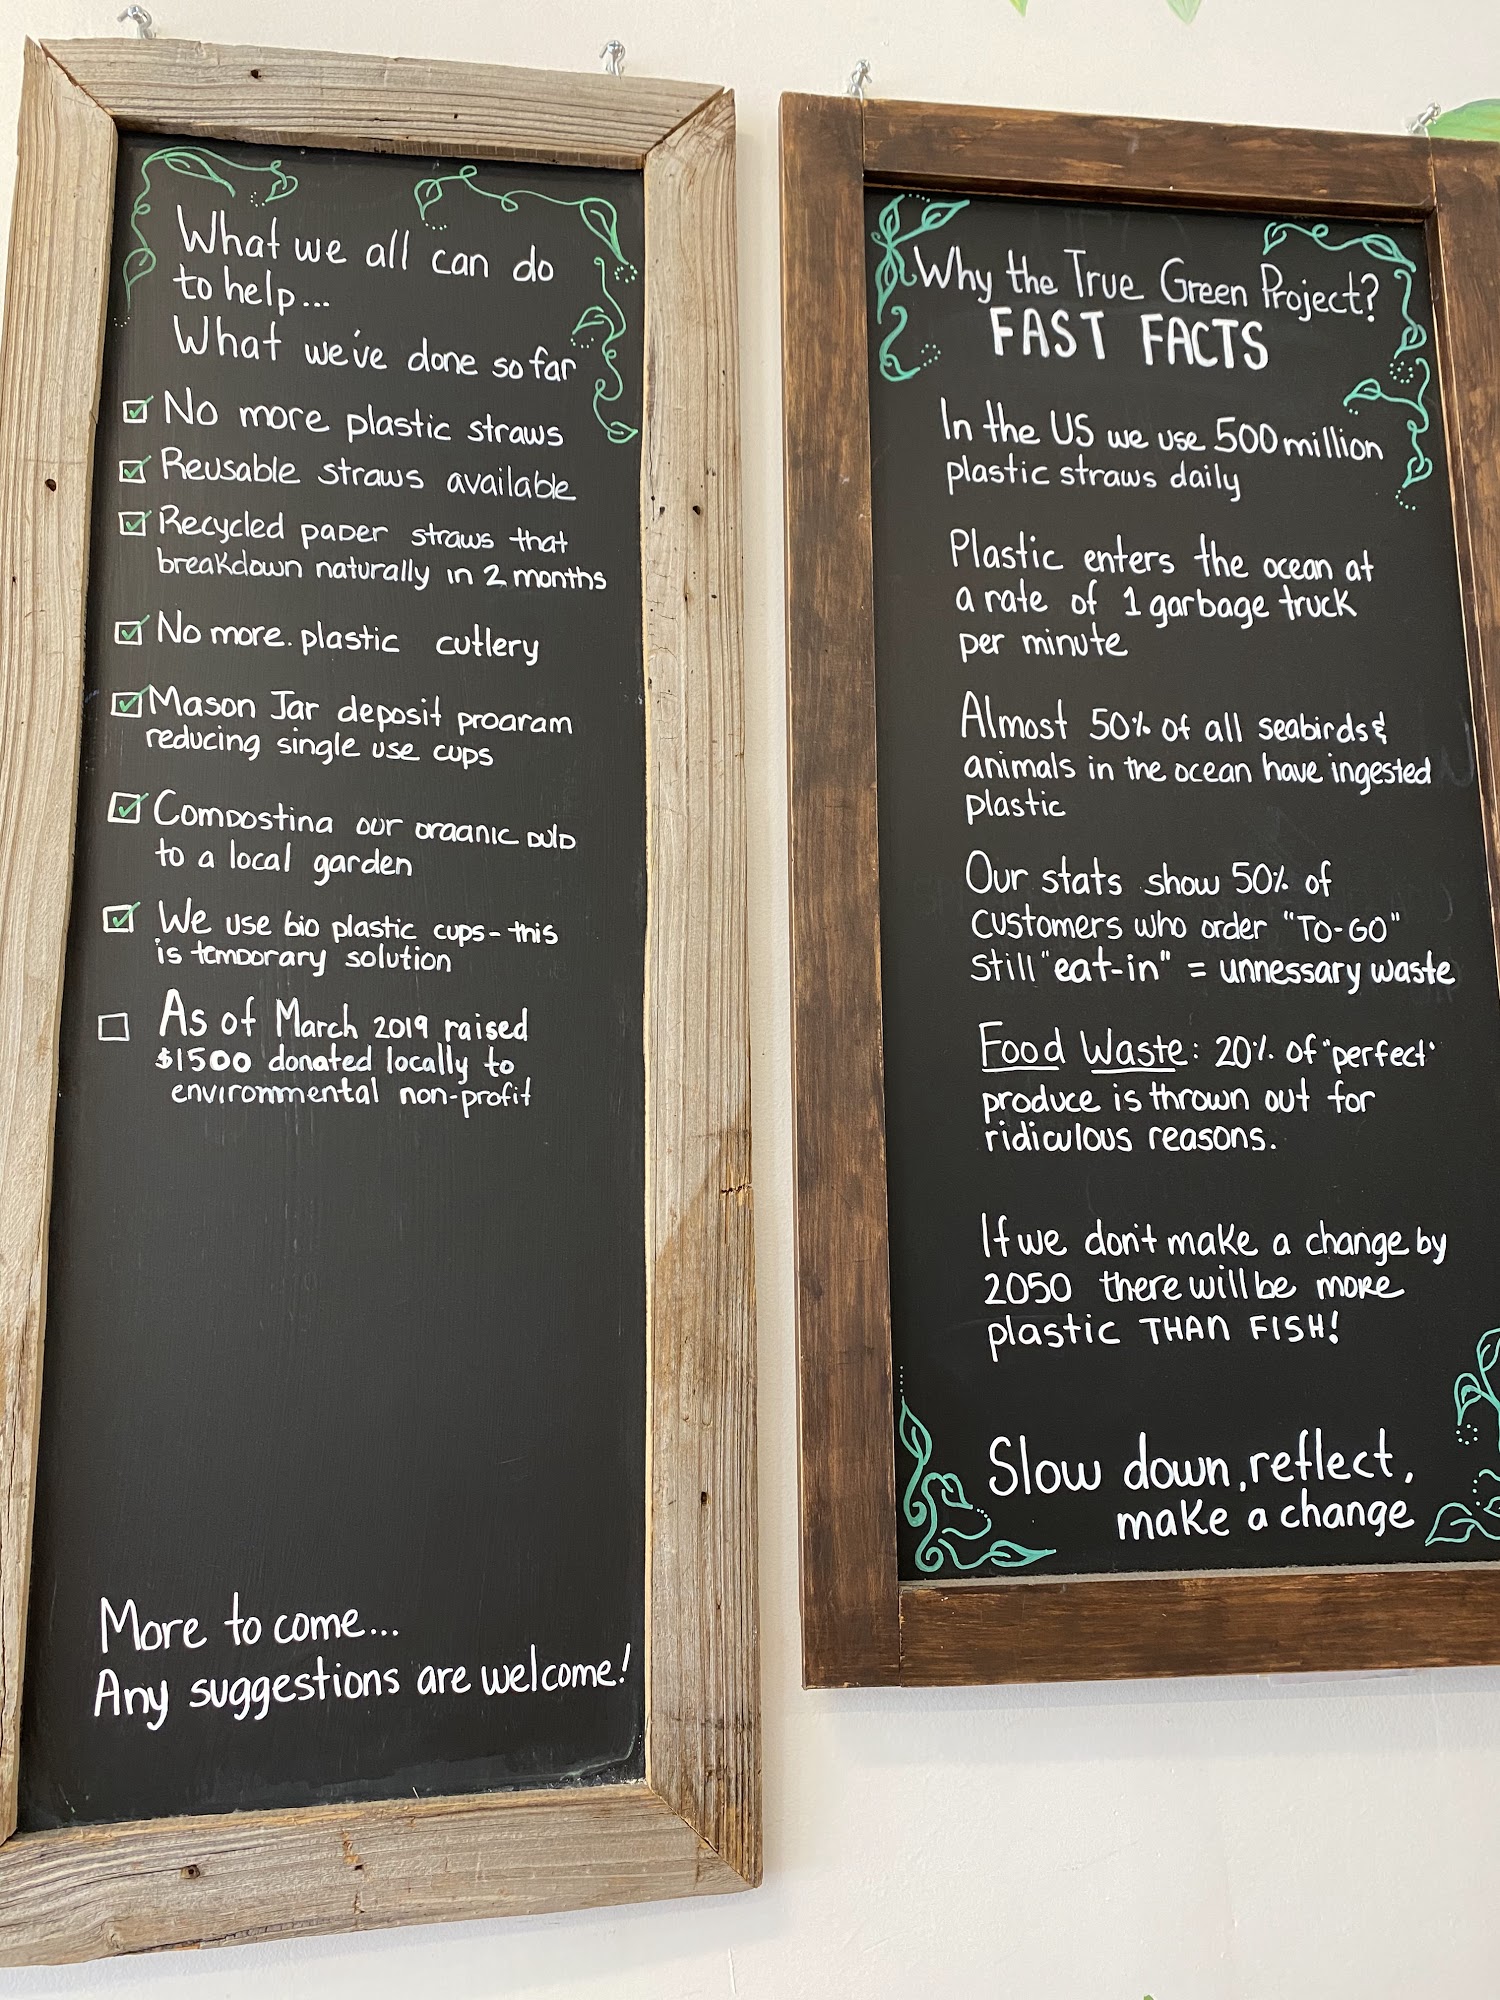 What we all can do
to help...
What we've done so far
No more plastic straws
Reusable straws available
Recycled paper straws that
breakdown naturally in 2 months
No more. plastic cutlery
Mason Jar deposit program
reducing single use cups
Composting our organic pulp
to a local garden
We use bio plastic cups - this
is temporary solution
As of March 2019 raised
$1500 donated locally to
environmental non-profit
More to come...
Any suggestions are welcome!
Why the True Green Project?
FAST FACTS
In the US we use 500 million
plastic straws daily
Plastic enters the ocean at
a rate of 1 garbage truck
per minute
Almost 50% of all seabirds &
animals in the ocean have ingested
plastic
Our stats show 50% of
customers who order "TO-GO"
still "eat-in" = unnessary waste
Food Waste: 20% of "perfect"
produce is thrown out for
ridiculous reasons.
If we don't make a change by
2050 there will be more
plastic THAN FISH!
Slow down, reflect,
make a change